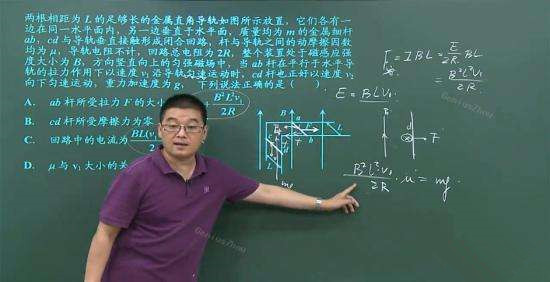 两根相距为 L 的足够长的金属直角导轨如图所示放置,它们各有一
边在同一水平面内,另一边垂直于水平面,质量均为 m 的金属细杆
ab,cd 与导轨垂直接触形成闭合回路,杆与导轨之间的动摩擦因数
均为 μ,导轨电阻不计,回路总电阻为 2R,整个装置处于磁感应强
度大小为 B,方向竖直向上的匀强磁场中,当 ab 杆在平行于水平导
轨的拉力作用下以速度 v₁ 沿导轨匀速运动时,cd 杆也正好以速度 v₂
向下匀速运动,重力加速度为 g,下列说法正确的是( )
A. ab 杆所受拉力 F 的大小 B²L²v₁/2R
B. cd 杆所受摩擦力为零
C. 回路中的电流为 BL(v₁
D. μ 与 v₁ 大小的关
F = IBL = E/2R BL
= B²L²V₁/2R
E = BLV₁
B a F L
b
c
d
L
mg
F
B²L²V₁/2R · μ = mg
GeniusZhou